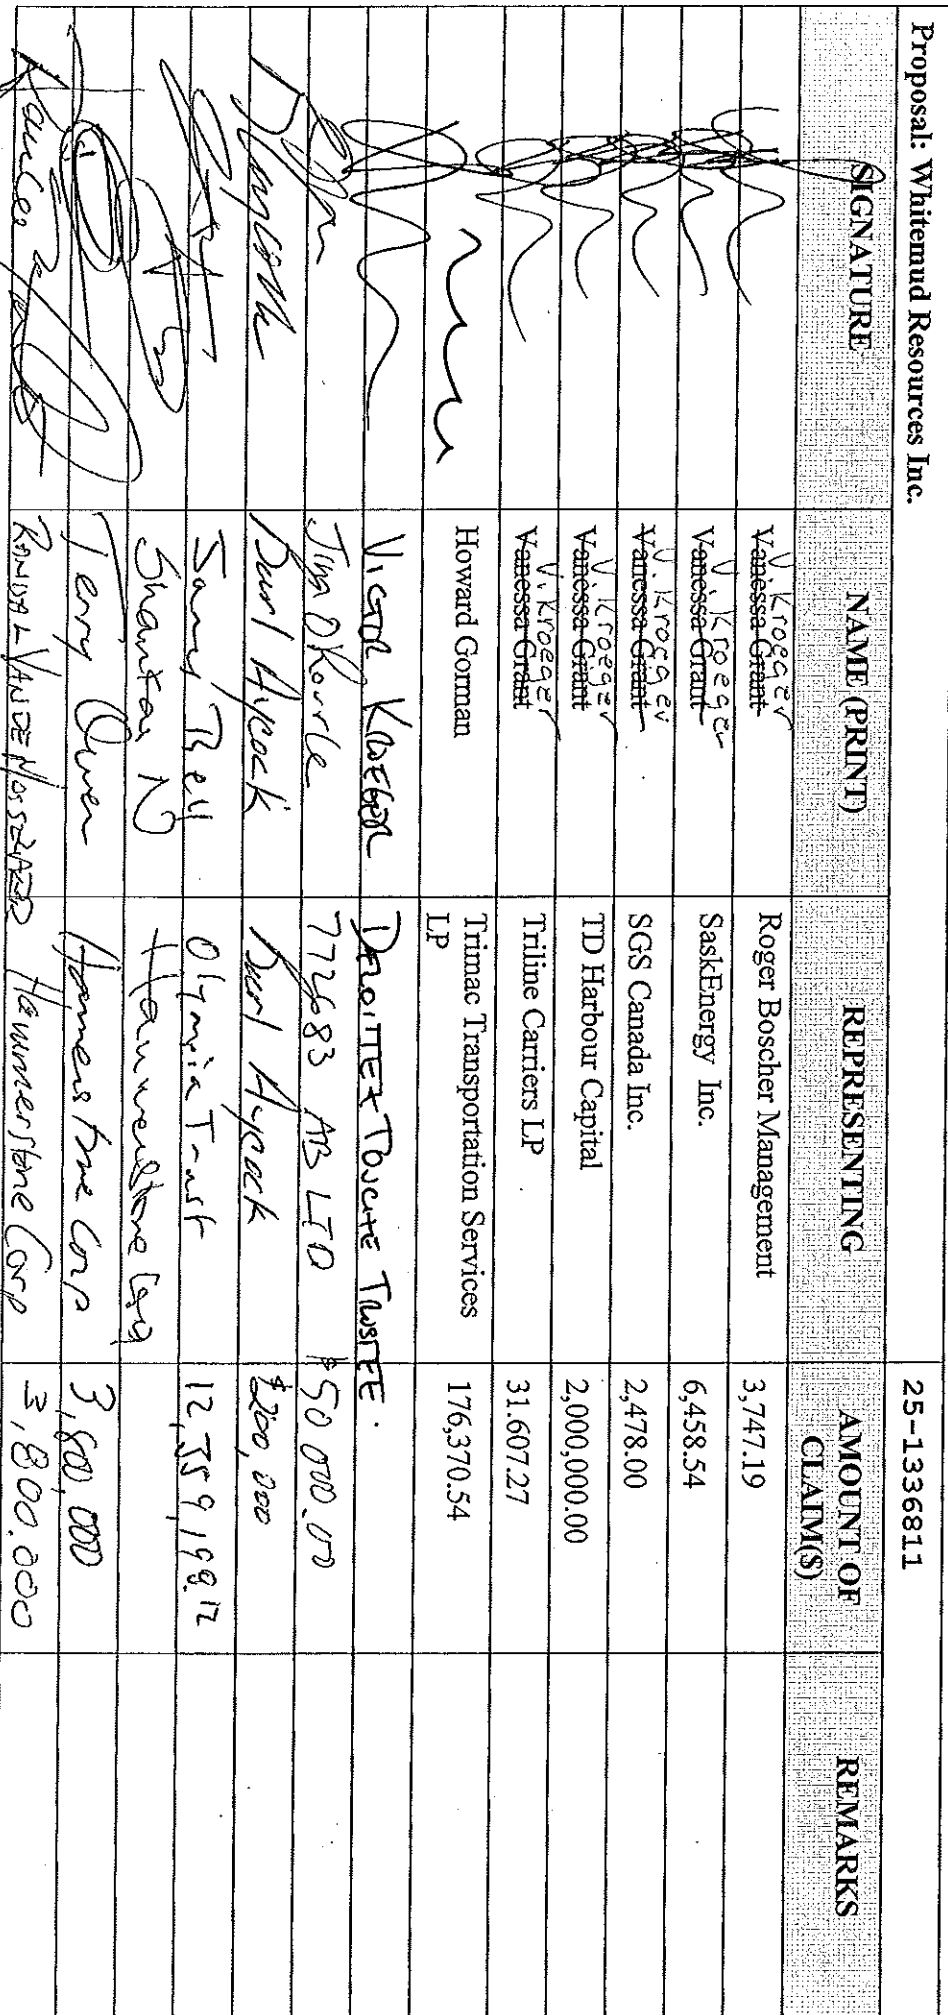 Proposal: Whitemud Resources Inc.
25-1336811
SIGNATURE NAME (PRINT) REPRESENTING AMOUNT OF CLAIM($) REMARKS
V. Kroeger
Vanessa Grant Roger Boscher Management 3,747.19
V. Kroeger
Vanessa Grant SaskEnergy Inc. 6,458.54
V. Kroeger
Vanessa Grant SGS Canada Inc. 2,478.00
V. Kroeger
Vanessa Grant TD Harbour Capital 2,000,000.00
V. Kroeger
Vanessa Grant Triline Carriers LP 31.607.27
Howard Gorman Trimac Transportation Services 176,370.54
LP
VICTOR KROEGER DELOITTE & TOUCHE TRUSTEE.
Jim O'Rourke 772683 AB LTD $50 000.00
Hycock Hycock $200,000
Bell Olympia Trust
N Hammerstone Corp
Terry Owen Hammerstone Corp 3,800,000
Hammerstone Corp 3,800.000